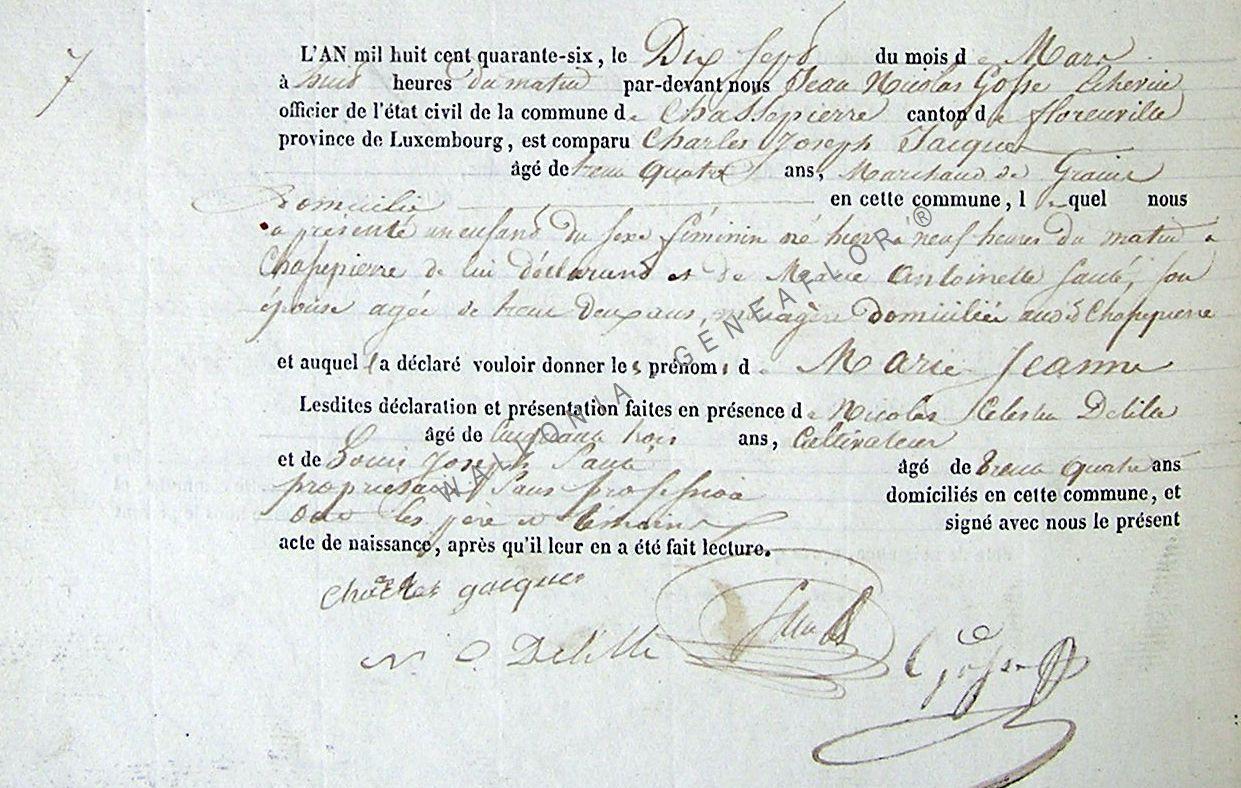 7
L'AN mil huit cent quarante-six, le Dix Sept du mois de Mars
à huit heures du matin par-devant nous Jean Nicolas Gosse Echevin
officier de l'état civil de la commune de Chassepierre canton de florenville
province de Luxembourg, est comparu Charles Joseph Jacques
âgé de trente quatre ans, Marchand de Graine
Domicilié en cette commune, lequel nous
a présenté un enfant du sexe féminin né hier à neuf heures du matin à
Chassepierre de lui déclarant et de Marie Antoinette Sauté, son
épouse agée de trente deux ans, ménagère domiciliée audt Chassepierre
et auquel il a déclaré vouloir donner les prénoms de Marie Jeanne
Lesdites déclaration et présentation faites en présence de Nicolas Celestin Delille
âgé de cinquante trois ans, Cultivateur
et de Louis Joseph Sauté âgé de trente quatre ans
propriétaire Sans profession domiciliés en cette commune, et
les père et témoins signé avec nous le présent
acte de naissance, après qu'il leur en a été fait lecture.
Charles Jacques
N C Delille
Sauté
Gosse
WALLONIA GENEAFLOR ®